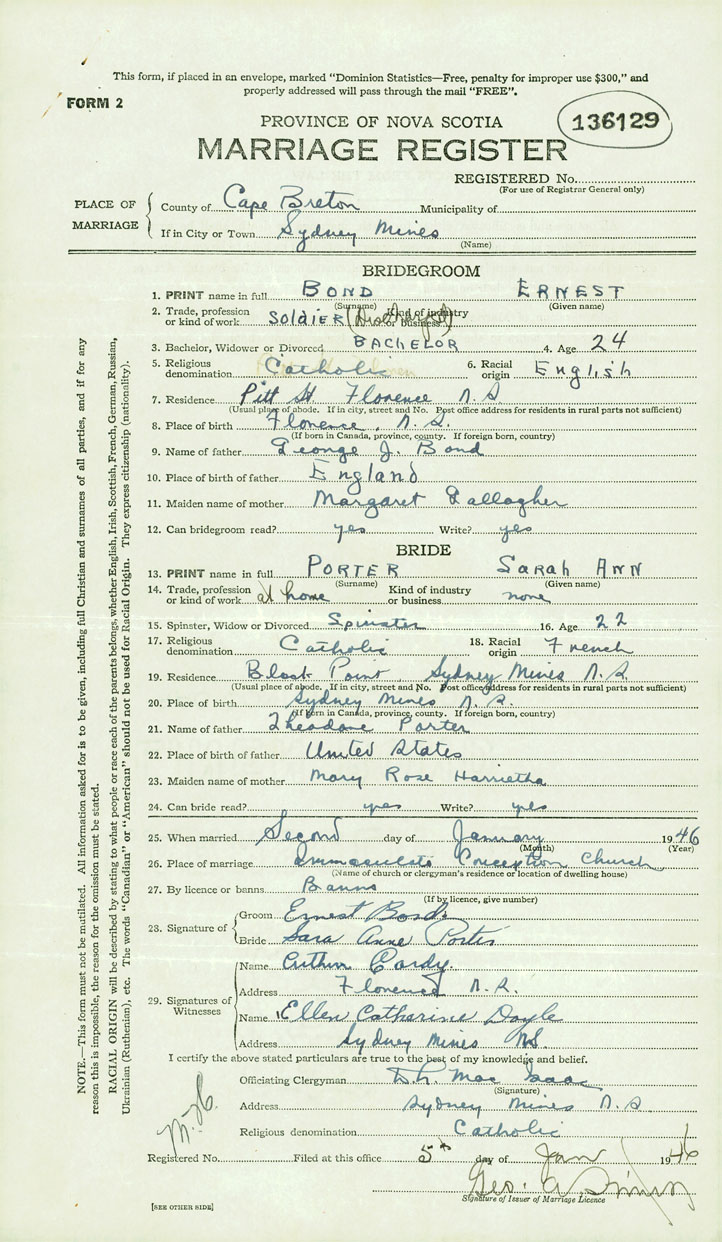 This form, if placed in an envelope, marked "Dominion Statistics—Free, penalty for improper use $300," and
properly addressed will pass through the mail "FREE".
FORM 2
136129
PROVINCE OF NOVA SCOTIA
MARRIAGE REGISTER
REGISTERED No.
(For use of Registrar General only)
PLACE OF MARRIAGE
County of Cape Breton Municipality of
If in City or Town Sydney Mines
(Name)
BRIDEGROOM
1. PRINT name in full BOND ERNEST
(Surname) (Given name)
2. Trade, profession or kind of work SOLDIER (Discharged) Kind of industry or business
3. Bachelor, Widower or Divorced BACHELOR 4. Age 24
5. Religious denomination Catholic 6. Racial origin English
7. Residence Pitt St. Florence N.S
(Usual place of abode. If in city, street and No. Post office address for residents in rural parts not sufficient)
8. Place of birth Florence, N.S.
(If born in Canada, province, county. If foreign born, country)
9. Name of father George J. Bond
10. Place of birth of father England
11. Maiden name of mother Margaret Gallagher
12. Can bridegroom read? yes Write? yes
BRIDE
13. PRINT name in full PORTER SARAH ANN
(Surname) (Given name)
14. Trade, profession or kind of work at home Kind of industry or business none
15. Spinster, Widow or Divorced Spinster 16. Age 22
17. Religious denomination Catholic 18. Racial origin French
19. Residence Point, Sydney Mines N.S.
(Usual place of abode. If in city, street and No. Post office address for residents in rural parts not sufficient)
20. Place of birth Sydney Mines N.S.
(If born in Canada, province, county. If foreign born, country)
21. Name of father Theodore Porter
22. Place of birth of father United States
23. Maiden name of mother Mary Rose Harrietha
24. Can bride read? yes Write? yes
25. When married Second day of January 1946
(Month) (Year)
26. Place of marriage Immaculate Conception Church
(Name of church or clergyman's residence or location of dwelling house)
27. By licence or banns Banns
(If by licence, give number)
28. Signature of
Groom Ernest Bond
Bride Sara Anne Porter
29. Signatures of Witnesses
Name Cordy
Address Florence N.S.
Name Ellen Catharine Doyle
Address Sydney Mines NS.
I certify the above stated particulars are true to the best of my knowledge and belief.
Officiating Clergyman D.h. Mac Isaac
(Signature)
Address Sydney Mines N.S.
Religious denomination Catholic
Registered No. Filed at this office 5th day of Jan 1946
Geo. A
Signature of Issuer of Marriage Licence
[SEE OTHER SIDE]
NOTE.—This form must not be mutilated. All information asked for is to be given, including full Christian and surnames of all parties, and if for any
reason this is impossible, the reason for the omission must be stated.
RACIAL ORIGIN will be described by stating to what people or race each of the parents belongs, whether English, Irish, Scottish, French, German, Russian,
Ukrainian (Ruthenian), etc. The words "Canadian" or "American" should not be used for Racial Origin. They express citizenship (nationality).